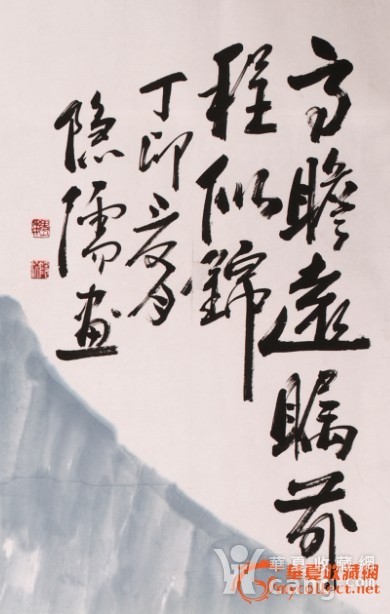 高瞻遠瞩前
程似錦
丁卯夏月
隐儒画
華夏收藏網
cang.com
華夏收藏網